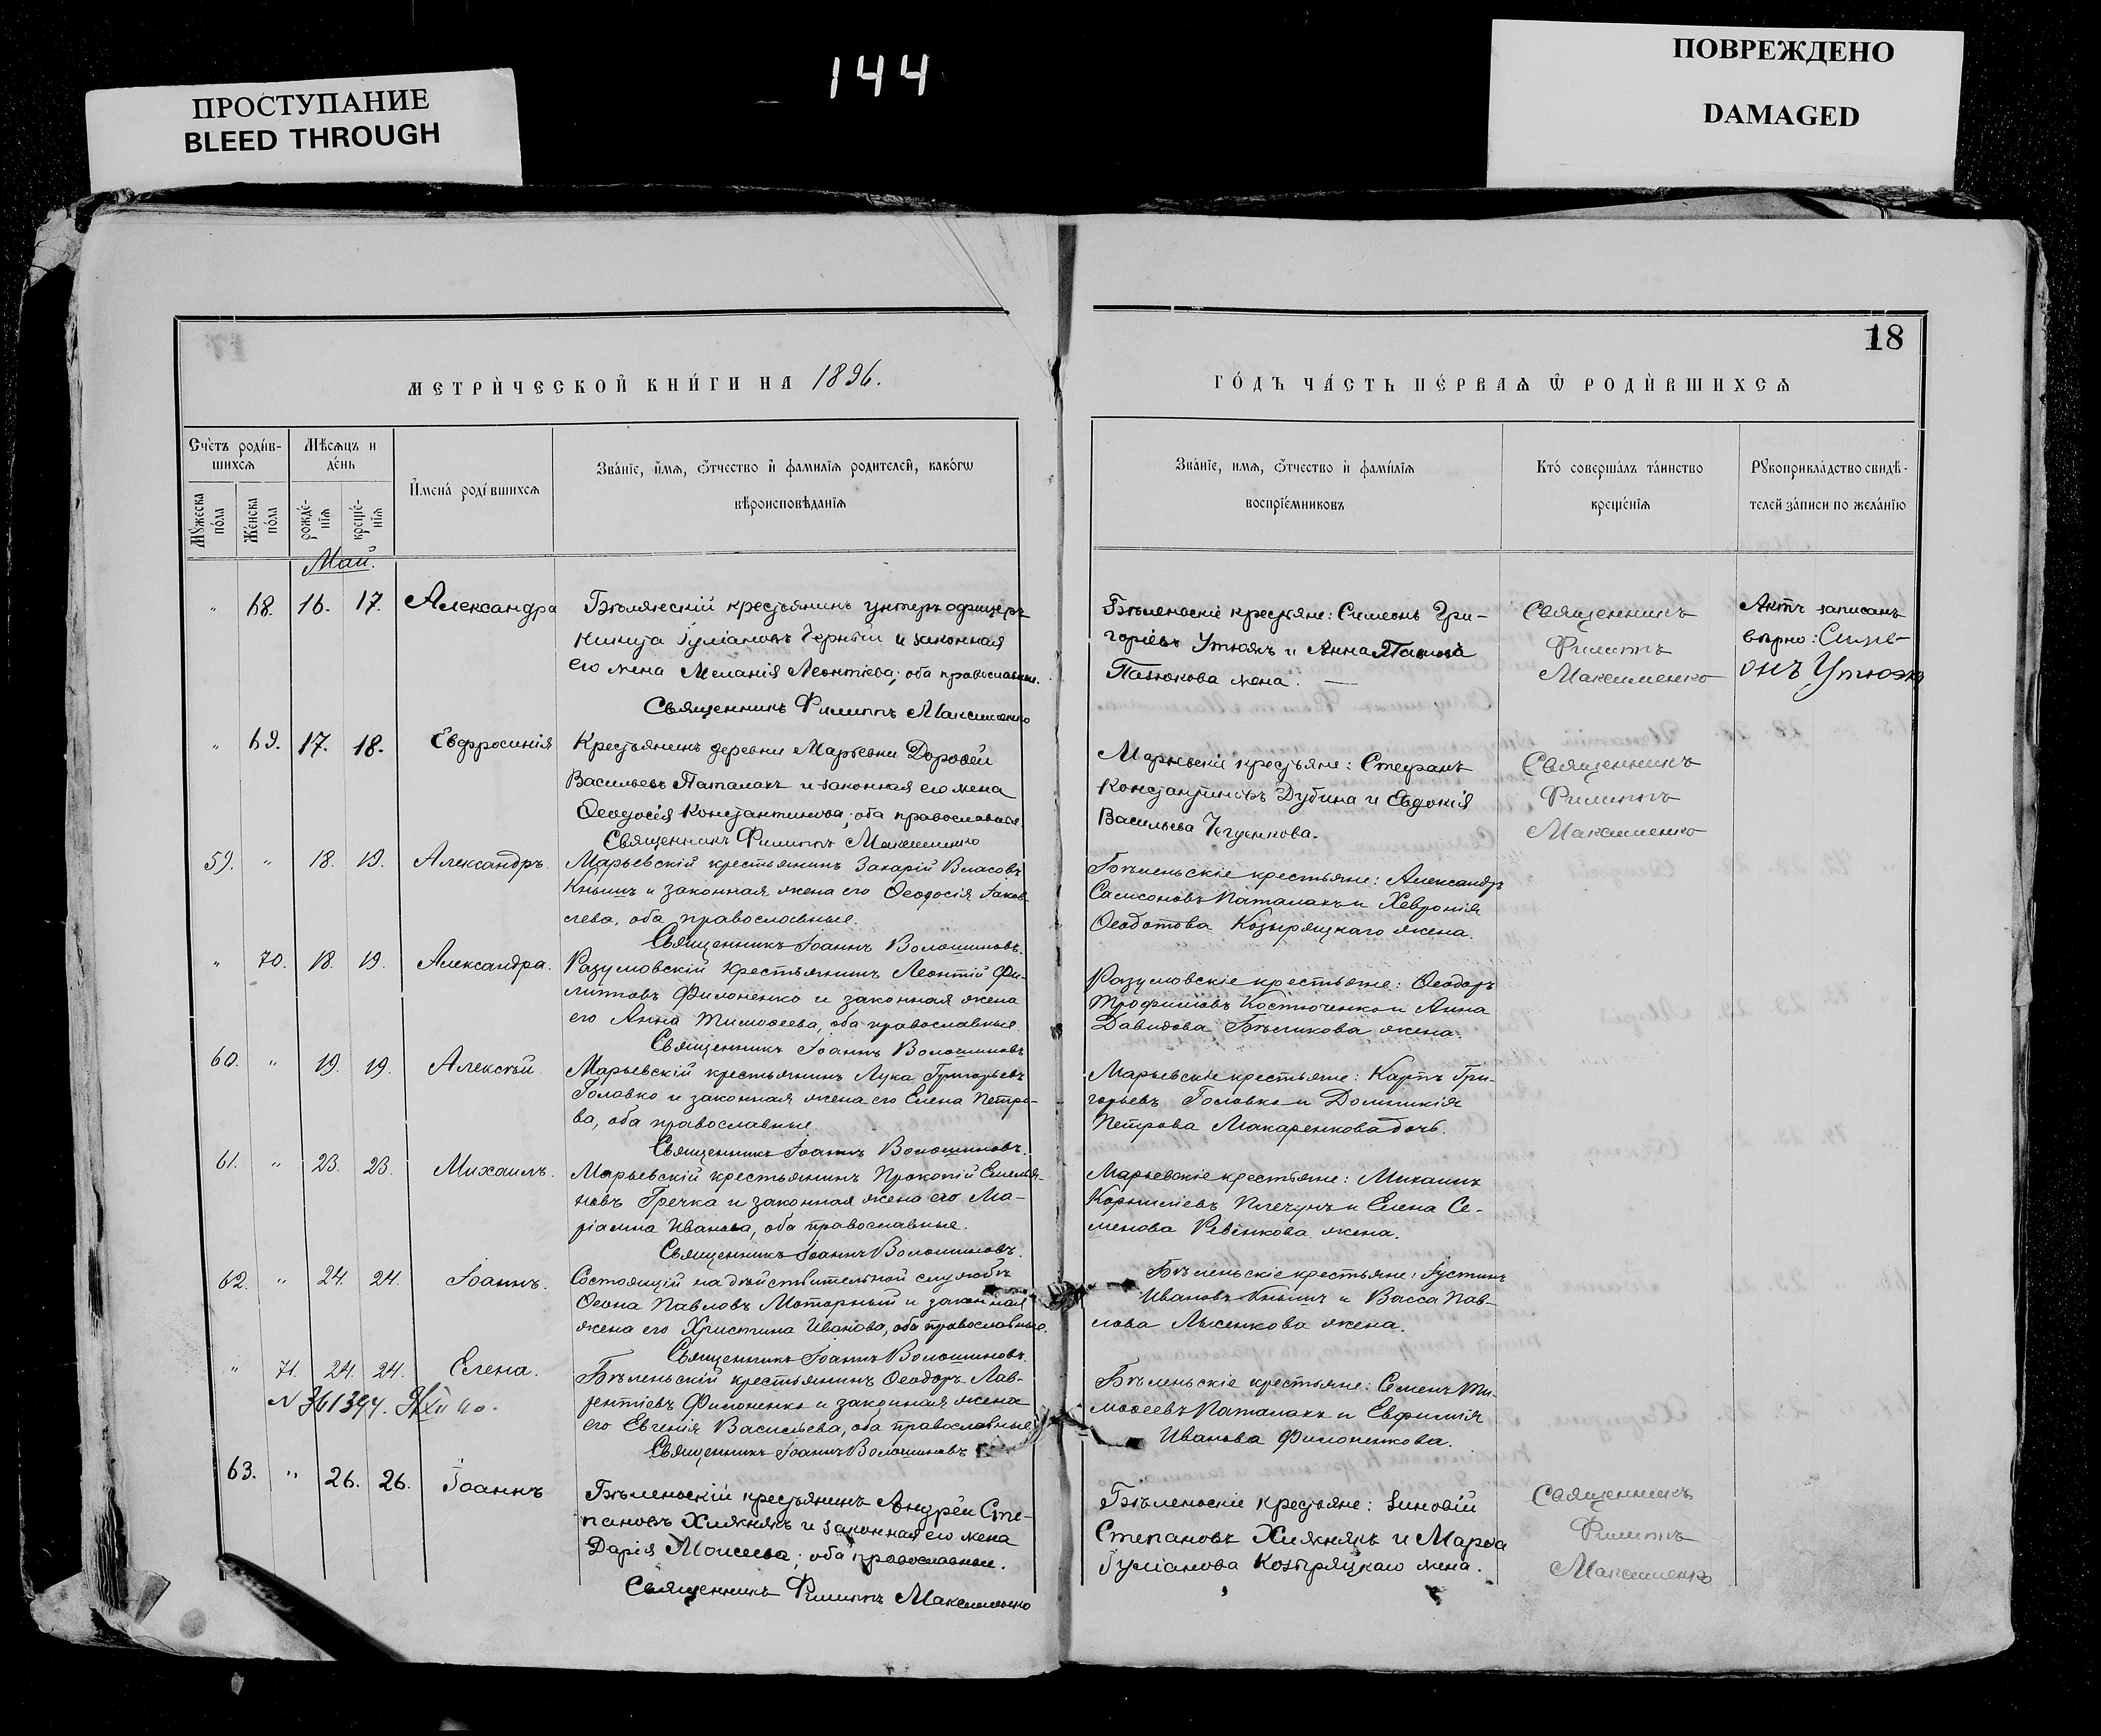 144
ПРОСТУПАНИЕ
BLEED THROUGH
ПОВРЕЖДЕНО
DAMAGED
18
МЕТРИ́ЧЕСКОЙ КНИ́ГИ НА 1896.
ГО́ДЪ ЧА́СТЬ ПЕ́РВАѦ Ѡ҆ РОДИ́ВШИХСѦ
Сче́тъ роди́в-
шихсѧ
Мꙋ́жеска по́ла
Же́нска по́ла
Мѣ́сѧцъ и де́нь
рожде́-
нїѧ
креще́-
нїѧ
И҆мена́ роди́вшихсѧ
Зва́нїе, и҆́мѧ, ѻ҆́тчество и҆ фами́лїѧ родителей, како́гѡ
вѣроисповѣ́данїѧ
Зва́нїе, имѧ, ѻ҆́тчество и҆ фами́лїѧ
воспрїе́мниковъ
Кто́ соверша́лъ та́инство
креще́нїѧ
Рꙋкоприкла́дство свидѣ́-
телей за́писи по жела́нїю
Май.
" 68. 16. 17. Александра
Бѣленскій крестьянинъ унтеръ офицеръ
Никита Іуліановъ Черный и законная
его жена Меланія Леонтіева; оба православные.
Священникъ Филиппъ Максименко
Бѣленскіе крестьяне: Симеонъ Гри-
горіевъ Утюжъ и Анна
жена.
Священникъ
Филиппъ
Максименко
Актъ записанъ
вѣрно: Симе-
онъ Утюжъ
" 69. 17. 18. Евфросинія
Крестьянинъ деревни Марьевки Дороѳей
Васильевъ Паталахъ и законная его жена
Ѳеодосія Константинова; оба православные
Священникъ Филиппъ Максименко
Марьевскіе крестьяне: Стефанъ
Константиновъ Дубина и Евдокія
Васильева
Священникъ
Филиппъ
Максименко
59. " 18. 19. Александръ.
Марьевскій крестьянинъ Захарій Власовъ
Кнышъ и законная жена его Ѳеодосія Іаков-
лева, оба православные.
Священникъ Іоаннъ Волошиновъ.
Бѣленьскіе крестьяне: Александръ
Самсоновъ Паталахъ и Хевронія
Ѳеодотова Козыряцкаго жена.
" 70. 18. 19. Александра.
Разумовскій крестьянинъ Леонтій Фи-
липповъ Филоненко и законная жена
его Анна Тимоѳеева, оба православные.
Священникъ Іоаннъ Волошиновъ
Разумовскіе крестьяне: Ѳеодоръ
Трофимовъ Костюченко и Анна
Давидова Бѣликова жена.
60. " 19. 19. Алексѣй.
Марьевскій крестьянинъ Лука Григорьевъ
Головко и законная жена его Елена Петро-
ва, оба православные.
Священникъ Іоаннъ Волошиновъ.
Марьевскіе крестьяне: Карпъ Гри-
горьевъ Головко и Домникія
Петрова Макаренкова дочь.
61. " 23. 23. Михаилъ.
Марьевскій крестьянинъ Прокопій Емелья-
новъ Гречка и законная жена его Ма-
ріамна Иванова, оба православные.
Священникъ Іоаннъ Волошиновъ.
Марьевскіе крестьяне: Михаилъ
Корниліевъ Плечунъ и Елена Се-
менова Ревенкова жена.
62. " 24. 24. Іоаннъ.
Состоящій на дѣйствительной службѣ
Ѳеона Павловъ Моторный и законная
жена его Христина Иванова, оба православные.
Священникъ Іоаннъ Волошиновъ.
Бѣленьскіе крестьяне: Іустинъ
Ивановъ Кнышъ и Васса Пав-
лова Лысенкова жена.
" 71. 24. 24. Елена.
N 361394.
Бѣленьскій крестьянинъ Ѳеодоръ Лав-
рентіевъ Филоненко и законная жена
его Евгенія Васильева, оба православные.
Священникъ Іоаннъ Волошиновъ
Бѣленьскіе крестьяне: Семенъ Ти-
моѳеевъ Паталахъ и Евфимія
Иванова Филоненкова.
63. " 26. 26. Іоаннъ
Бѣленоскій крестьянинъ Андрей Сте-
пановъ Хижнякъ и законная его жена
Дарія Моисеева; оба православные.
Священникъ Филиппъ Максименко
Бѣленоскіе крестьяне: Зиновій
Степановъ Хижнякъ и Марѳа
Іуліанова Козыряцкаго жена.
Священникъ
Филиппъ
Максименко